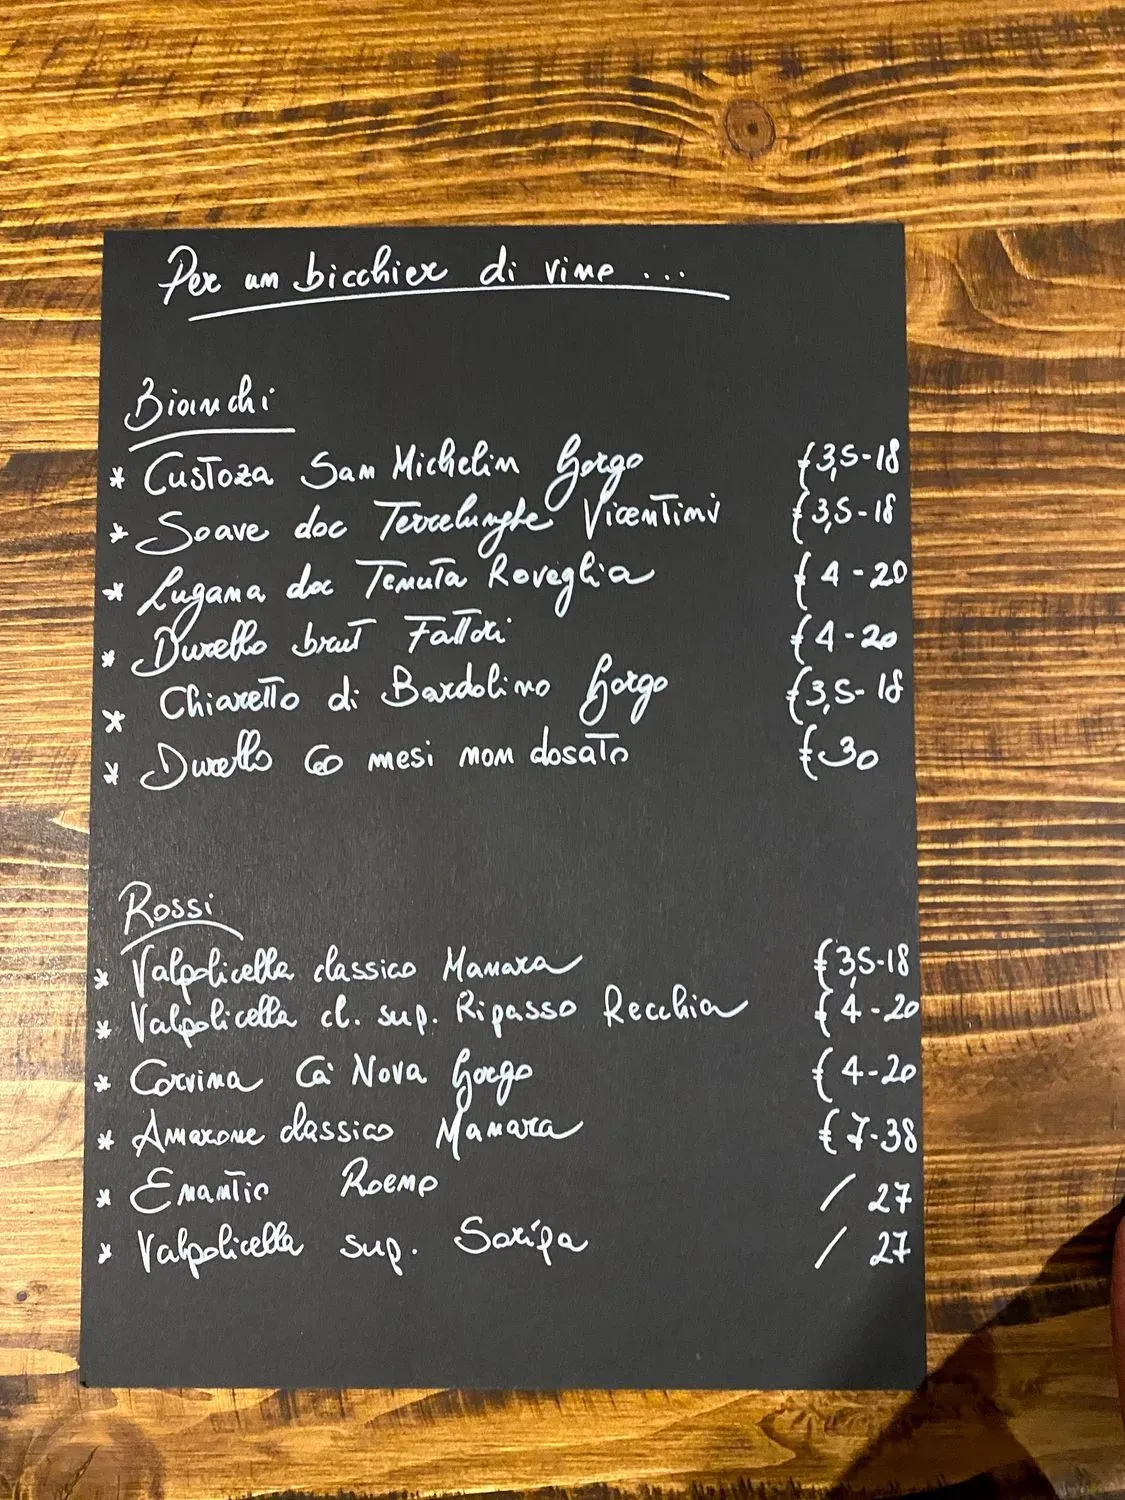 Per un bicchier di vino ...
Bianchi
* Custoza San Michelin Gorgo €3,5-18
* Soave doc Terrelunghe Vicentini €3,5-18
* Lugana doc Tenuta Roveglia € 4-20
* Durello brut Fattori €4-20
* Chiaretto di Bardolino Gorgo €3,5-18
* Durello 60 mesi non dosato €30
Rossi
* Valpolicella classico Manara €3,5-18
* Valpolicella cl. sup. Ripasso Recchia €4-20
* Corvina Cà Nova Gorgo €4-20
* Amarone classico Manara €7-38
* Enantio Roeno / 27
* Valpolicella sup. Saripa / 27